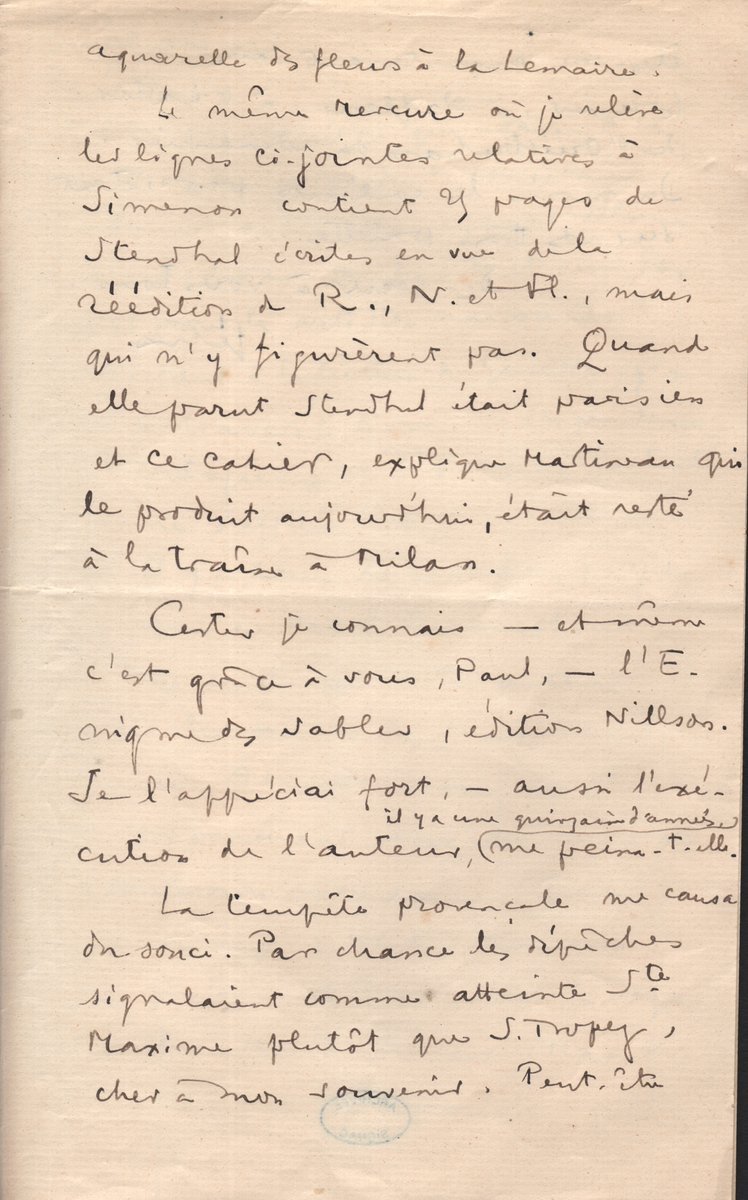 aquarelle des fleurs à la Lemaire.
Le même Mercure où je relève
les lignes ci-jointes relatives à
Simenon contient 25 pages de
Stendhal écrites en vue de la
réédition de R., N. et Fl., mais
qui n'y figurèrent pas. Quand
elle parut Stendhal était parisien
et ce cahier, explique Martineau qui
le produit aujourd'hui, était resté
à la traîne à Milan.
Certes je connais — et même
c'est grâce à vous, Paul, — l'É-
nigme des sables, édition Nillson.
Je l'appréciai fort, — aussi l'exé-
il y a une quinzaine d'années,
cution de l'auteur, me peina-t-elle.
La tempête provençale me causa
du souci. Par chance les dépêches
signalaient comme atteinte Ste
Maxime plutôt que S. Tropez,
cher à mon souvenir. Peut-être
SIGNAC